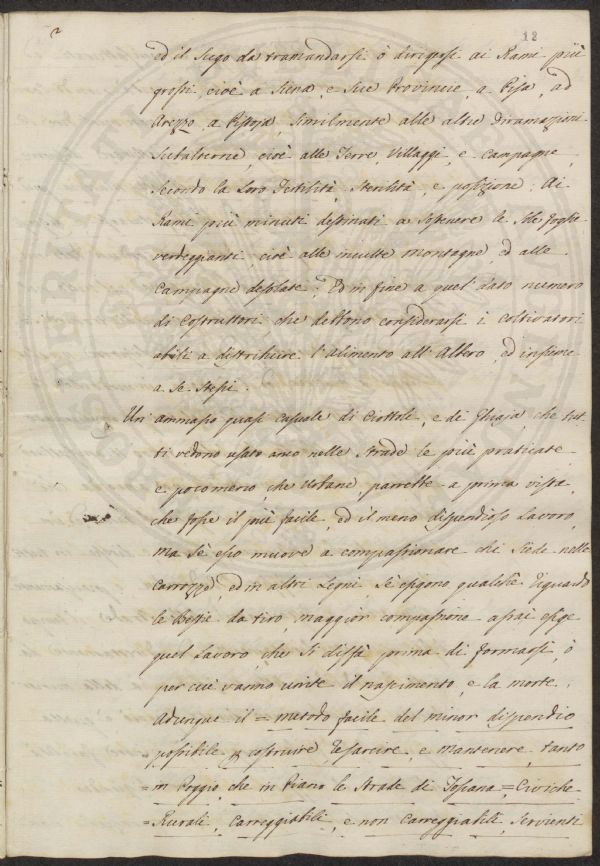 2
18
ed il Sugo da tramandarsi ò dirigersi ai Rami più
grossi, cioè a Siena, e sue Provincie, a Pisa, ad
Arezzo, a Pistoja, similmente alle altre diramazioni
subalterne, cioè alle Terre, Villaggi, e campagne,
secondo la Loro Fertilità, sterilità, e posizione: Ai
Rami più minuti destinati a sostenere le sole foglie
verdeggianti, cioè alle inculte montagne, ed alle
Campagne desolate; Ed in fine a quel dato numero
di Costruttori che debbono considerarsi i coltivatori
abili a distribuire l'Alimento all'Albero, ed insieme
a se stessi.
Un ammasso quasi casuale di Ciottoli, e di Ghiaja, che tut-
ti vedono usato anco nelle strade le più praticate
e pocomeno, che Urbane, parrebbe a prima vista,
che fosse il più facile, ed il meno dispendioso Lavoro,
ma sè esso muove a compassionare chi siede nelle
Carrozze, ed in altri Legni, sè esigono qualche riguardo
le Bestie da tiro, maggior compassione assai esige
quel Lavoro, che si disfà prima di formarsi, ò
per cui vanno unite il nascimento, e la morte.
Adunque il = metodo facile del minor dispendio
possibile p costruire, resarcire, e mantenere, tanto
= in Poggio, che in Piano le strade di Toscana = Civiche
= Rurali, Carreggiabili, e non carreggiabili, servienti